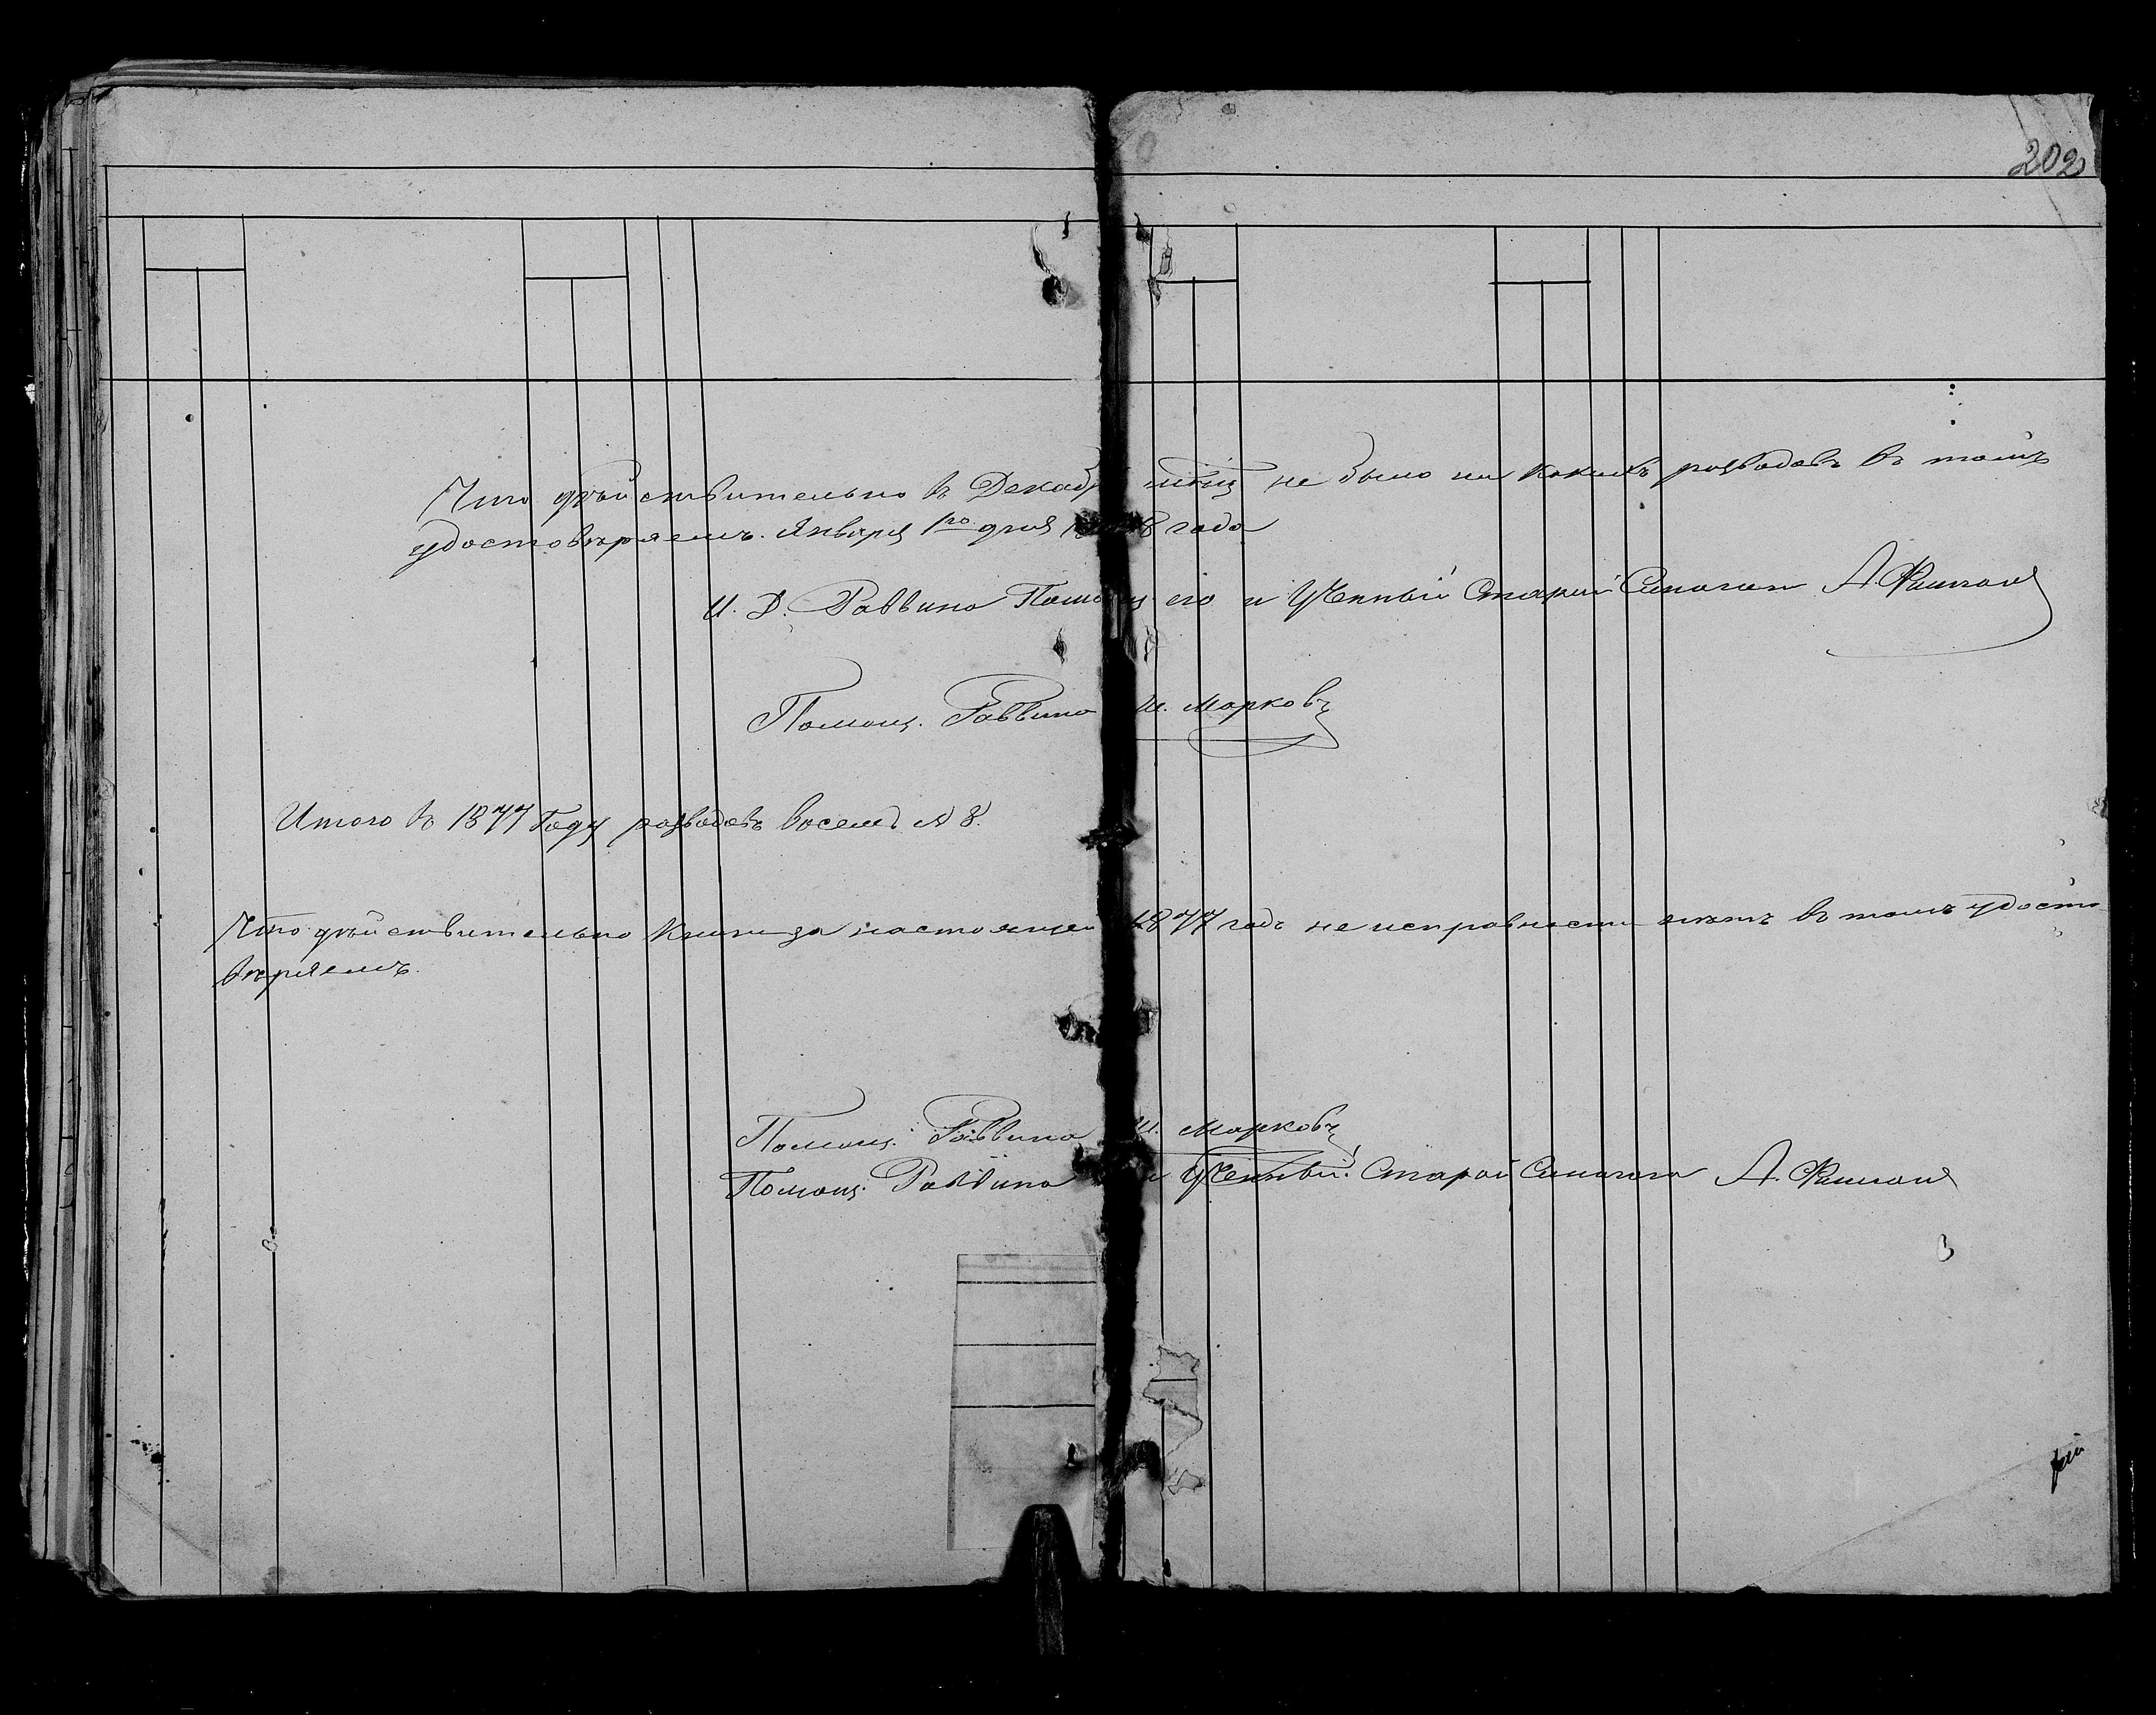 202
Что дѣйствительно въ Декабр мѣц не было ни какихъ розводовъ въ томъ
удостовѣряемъ. Января 1го дня 18 8 года
И. Д. Раввина Помощ его и Ученный Старой Синагоги А. Фишман
Помощ. Раввина Ш. Марковъ
Итого въ 1877 Году розводовъ восемъ № 8.
Что дѣйствительно Книги за настоящей 1877 годъ не исправности нѣтъ въ томъ удосто
вѣряемъ.
Помощ. Раввина Ш. Марковъ
Помощ. Раввина и Ученный Старой Синагога А. Фишман